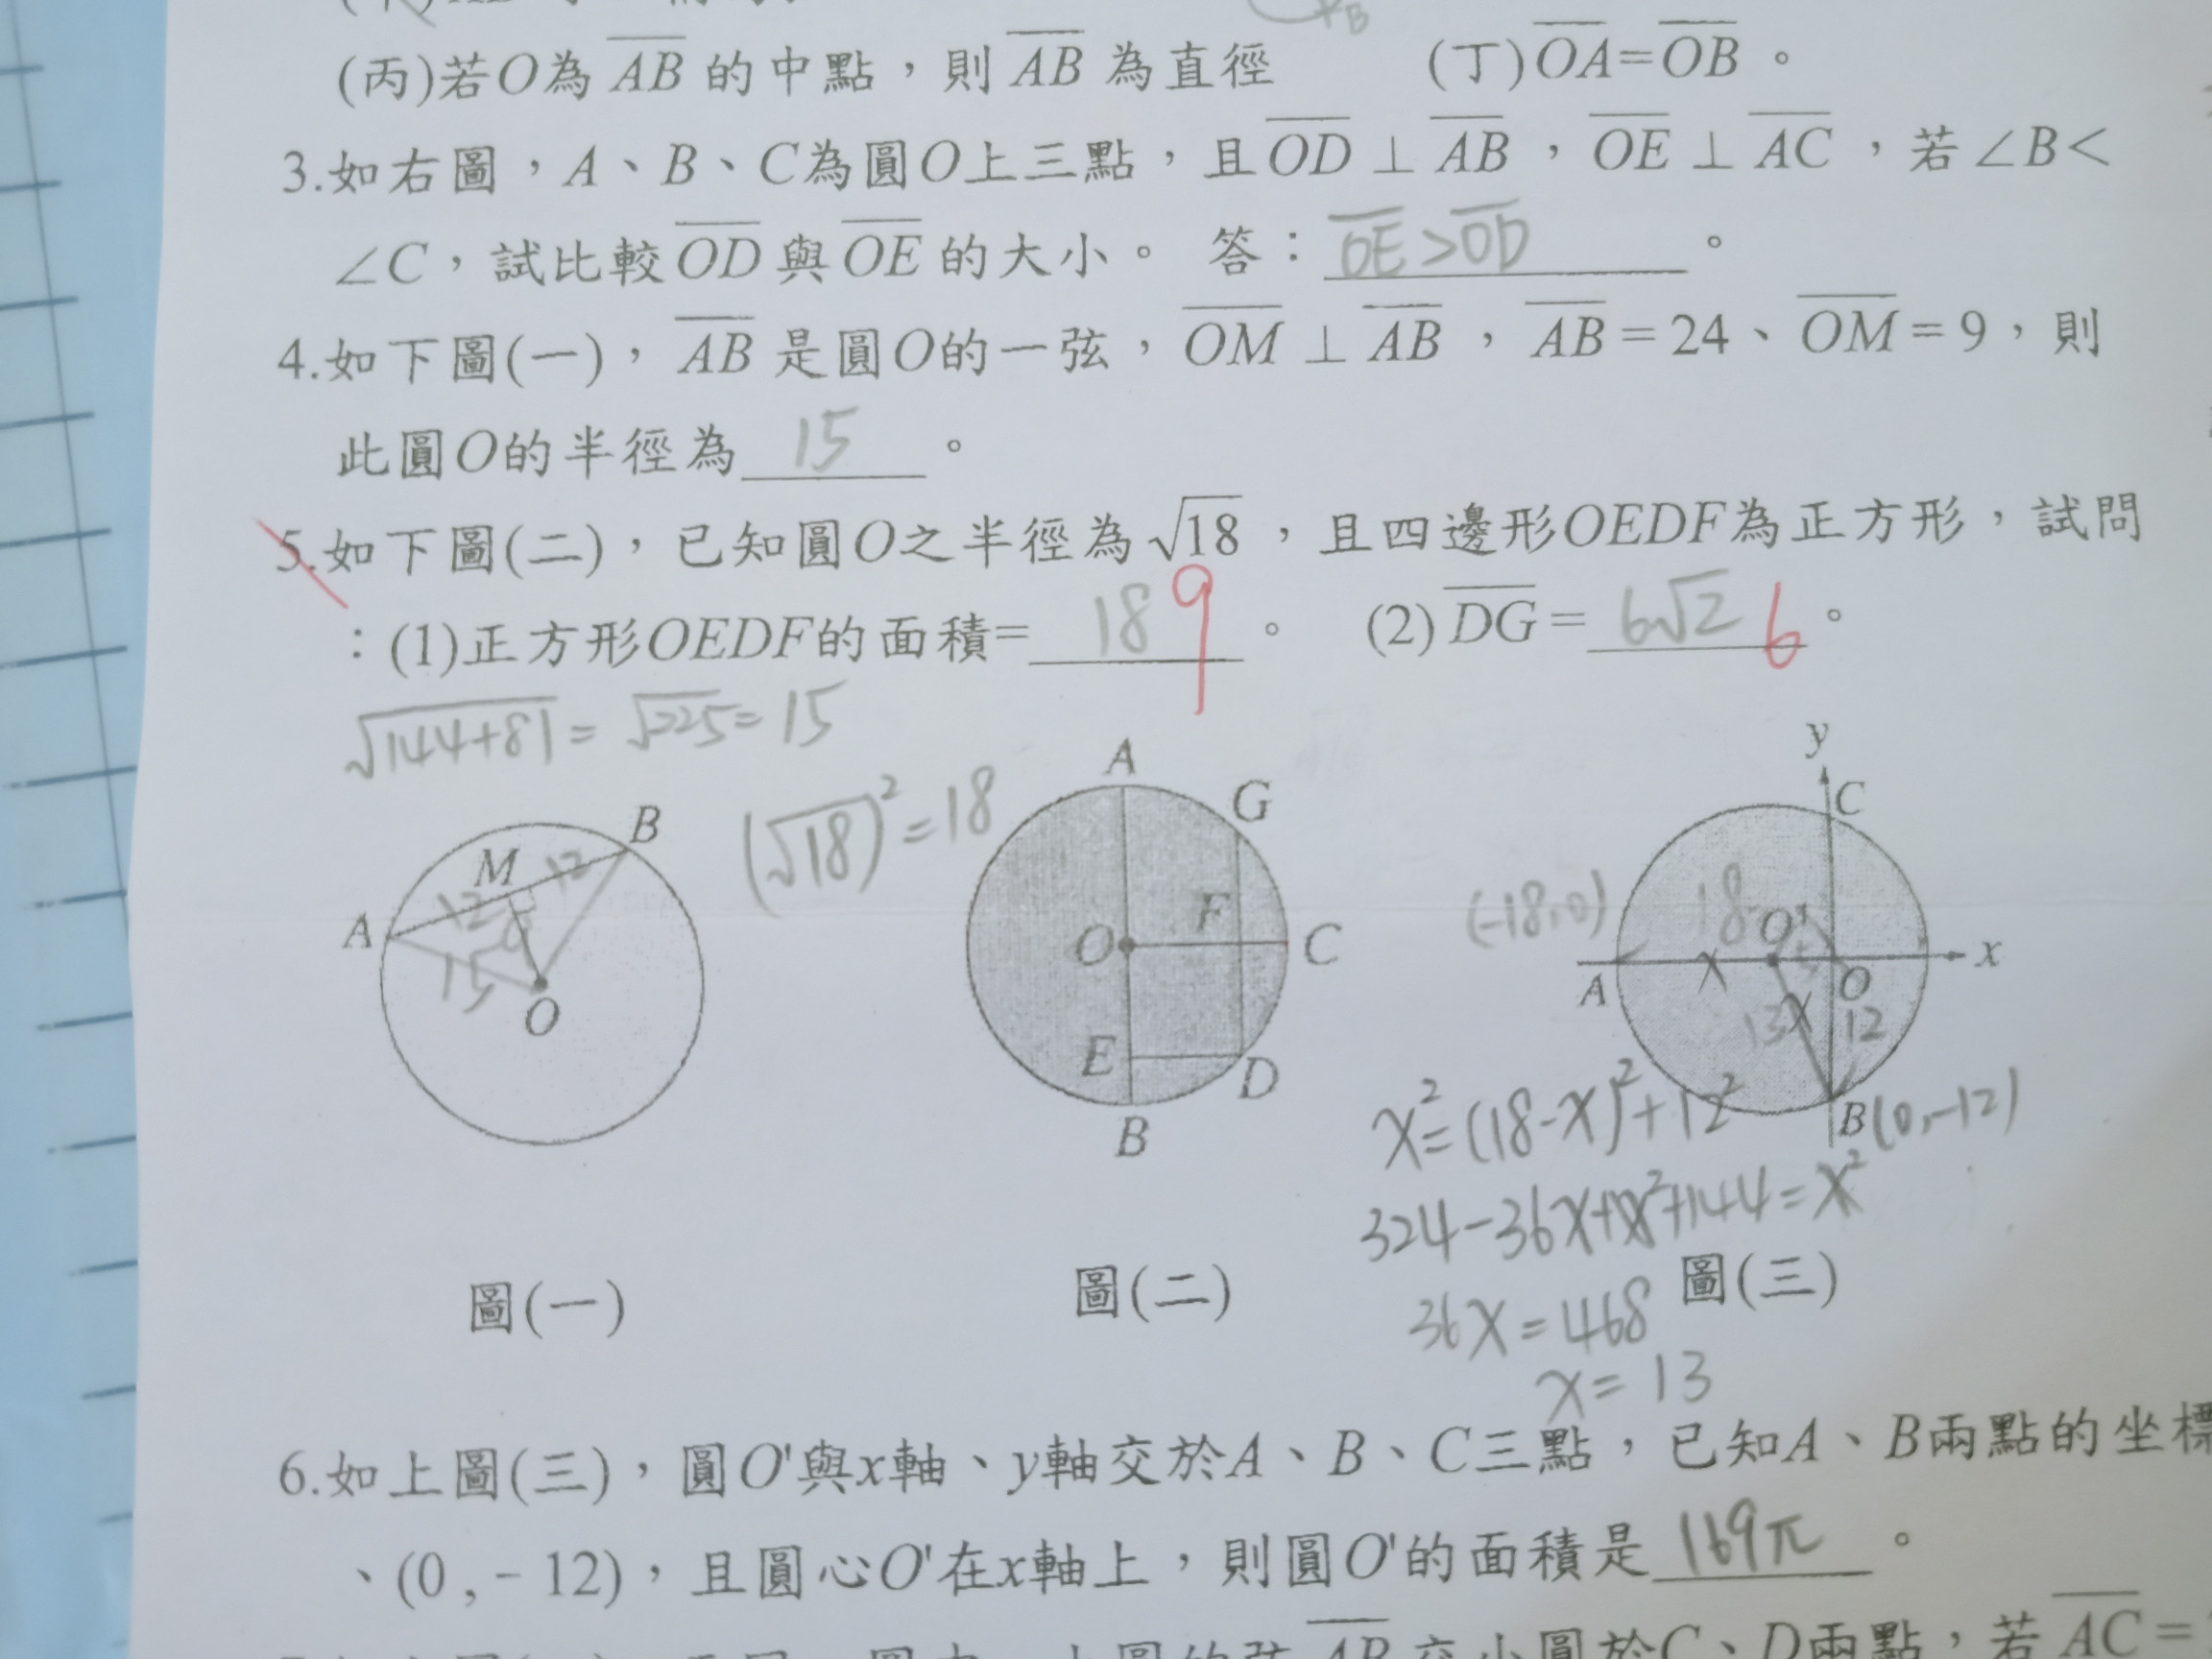 (丙)若O為 AB 的中點，則 AB 為直徑 (丁)OA=OB。
3.如右圖，A、B、C為圓O上三點，且OD⊥AB，OE⊥AC，若∠B<
∠C，試比較OD與OE的大小。 答：OE>OD。
4.如下圖(一)，AB 是圓O的一弦，OM⊥AB，AB=24、OM=9，則
此圓O的半徑為 15 。
5.如下圖(二)，已知圓O之半徑為√18，且四邊形OEDF為正方形，試問
：(1)正方形OEDF的面積= 18 9 。 (2) DG= 6√2 6 。
√144+81=√225=15
(√18)²=18
A M B 12 12 9 15 O
A G F O C E D B
y C (-18,0) 18 O' x A O 13 12 B(0,-12)
x²=(18-x)²+12²
324-36x+x²+144=x²
圖(一) 圖(二) 圖(三)
36x=468
x=13
6.如上圖(三)，圓O'與x軸、y軸交於A、B、C三點，已知A、B兩點的坐標
、(0,-12)，且圓心O'在x軸上，則圓O'的面積是 169π 。
AB 交小圓於C、D兩點，若 AC=